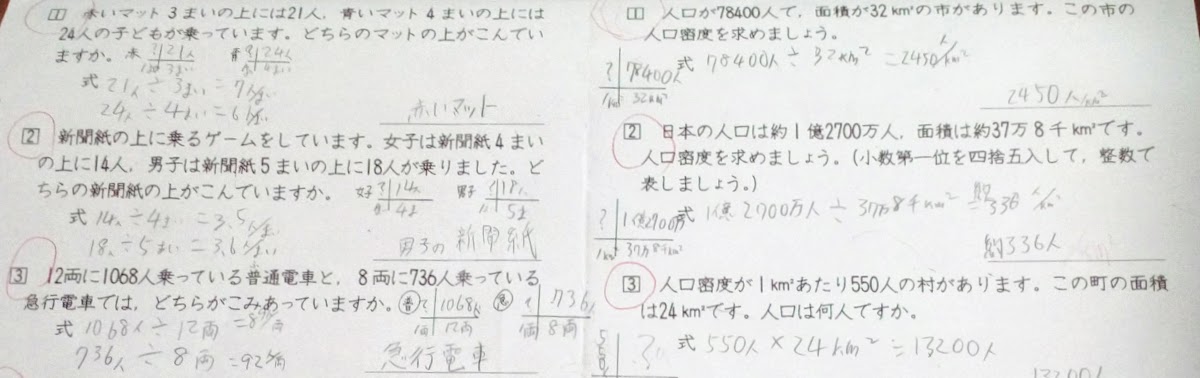 1 赤いマット3まいの上には21人，青いマット4まいの上には
24人の子どもが乗っています。どちらのマットの上がこんでい
ますか。
赤 ? 21人 3まい
青 ? 24人 4まい
式 21人÷3まい=7人/まい
24人÷4まい=6人/まい
赤いマット
2 新聞紙の上に乗るゲームをしています。女子は新聞紙4まい
の上に14人，男子は新聞紙5まいの上に18人が乗りました。ど
ちらの新聞紙の上がこんでいますか。
女子 ? 14人 4ま
男子 ? 18人 5ま
式 14人÷4まい=3.5人/まい
18人÷5まい=3.6人/まい
男子の新聞紙
3 12両に1068人乗っている普通電車と，8両に736人乗っている
急行電車では，どちらがこみあっていますか。
普 ? 1068人 1両 12両
急 ? 736人 1両 8両
式 1068人÷12両=89人/両
736人÷8両=92人/両
急行電車
1 人口が78400人で，面積が32km²の市があります。この市の
人口密度を求めましょう。
? 78400人
1km² 32km²
式 78400人÷32km²=2450人/km²
2450人/km²
2 日本の人口は約1億2700万人，面積は約37万8千km²です。
人口密度を求めましょう。(小数第一位を四捨五入して，整数で
表しましょう。)
? 1億2700万
1km² 37万8千km²
式 1億2700万人÷37万8千km²=約336人/km²
約336人
3 人口密度が1km²あたり550人の村があります。この町の面積
は24km²です。人口は何人ですか。
550 ?
式 550人×24km²=13200人
13200人